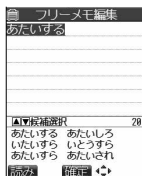 フリーメモ編集
あたいする
▲▼候補選択 20
あたいする あたいしろ
いたいすら いとうすら
あたいすら あたいされ
読み 確定